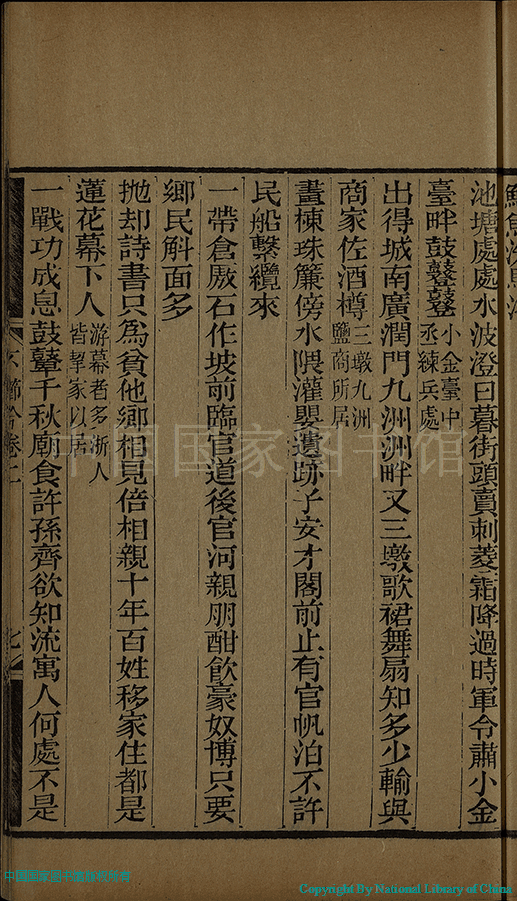 池塘處處水波澄日暮街頭賣刺菱霜降過時軍令肅小金
臺畔鼓鼟鼟小金臺中丞練兵處
出得城南廣潤門九洲洲畔又三墩歌裙舞扇知多少輸與
商家佐酒樽三墩九洲鹽商所居
畫棟珠簾傍水隈灌嬰遺跡子安才閣前止有官帆泊不許
民船繫纜來
一帶倉厫石作坡前臨官道後官河親朋酣飲豪奴博只要
鄉民斛面多
拋却詩書只為貧他鄉相見倍相親十年百姓移家住都是
蓮花幕下人游幕者多浙人皆挈家以居
一戰功成息鼓鼙千秋廟食許孫齊欲知流寓人何處不是
卷二
中国国家图书馆
中国国家图书馆
Copyright By National Library of China